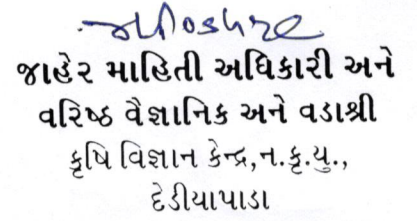 જાહેર માહિતી અધિકારી અને
વરિષ્ઠ વૈજ્ઞાનિક અને વડાશ્રી
કૃષિ વિજ્ઞાન કેન્દ્ર,ન.કૃ.યુ.,
દેડીયાપાડા